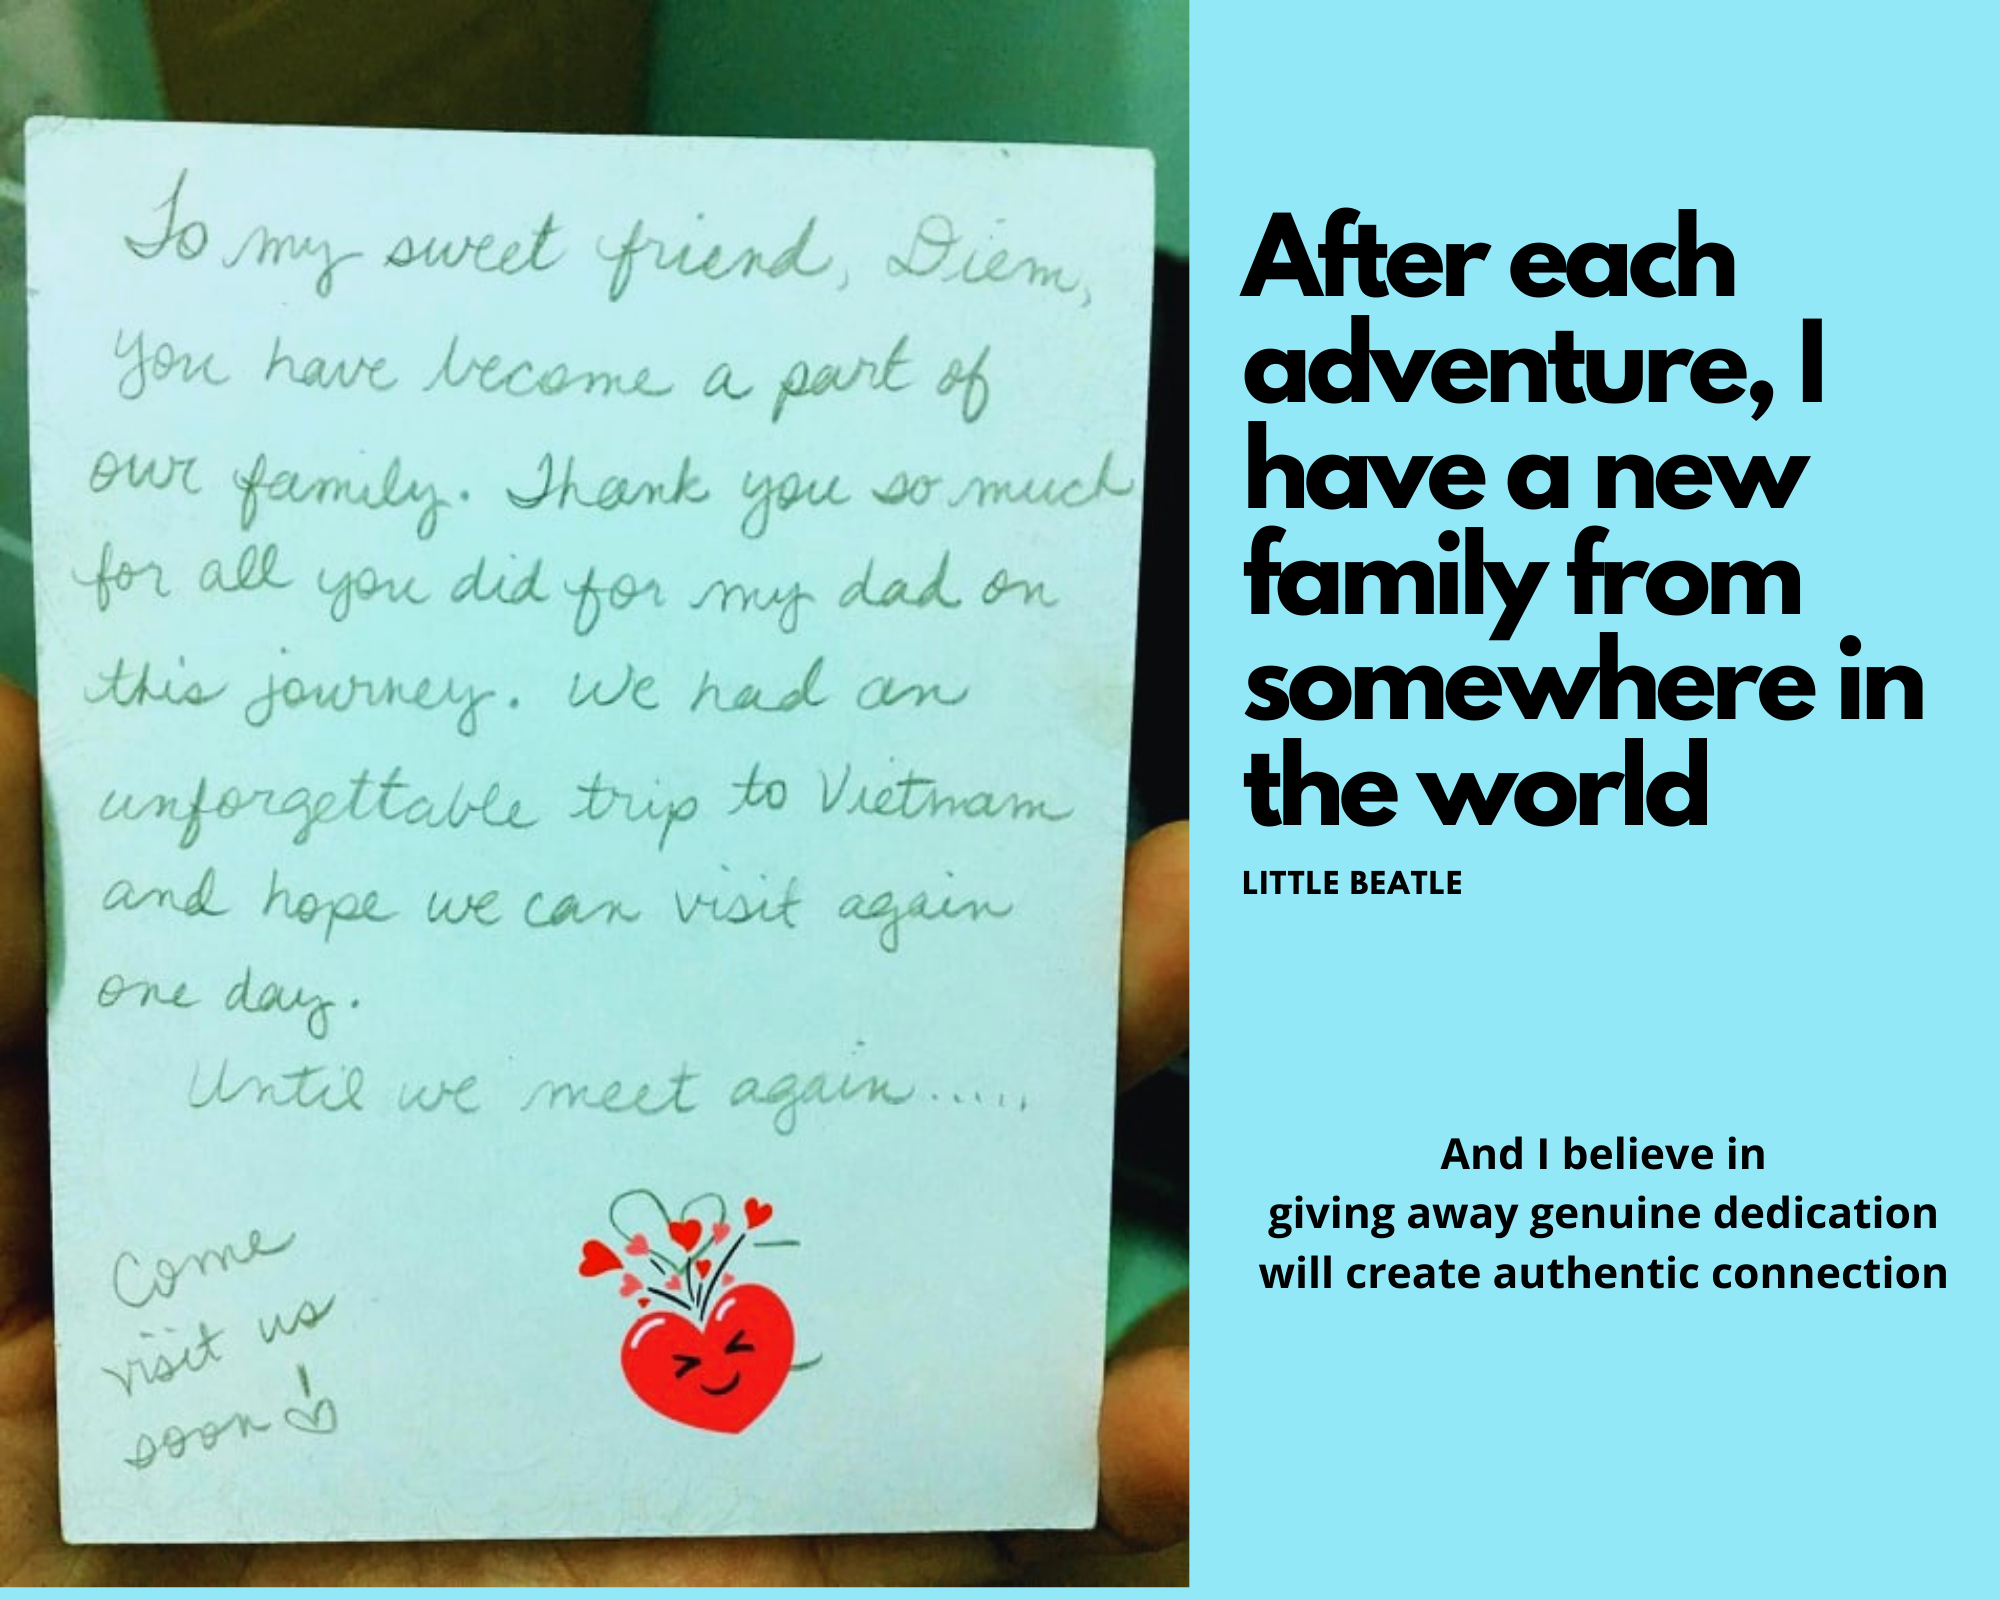 To my sweet friend, Diem,
You have become a part of
our family. Thank you so much
for all you did for my dad on
this journey. We had an
unforgettable trip to Vietnam
and hope we can visit again
one day.
Until we meet again.....
Come
visit us
soon!
After each
adventure, I
have a new
family from
somewhere in
the world
LITTLE BEATLE
And I believe in
giving away genuine dedication
will create authentic connection